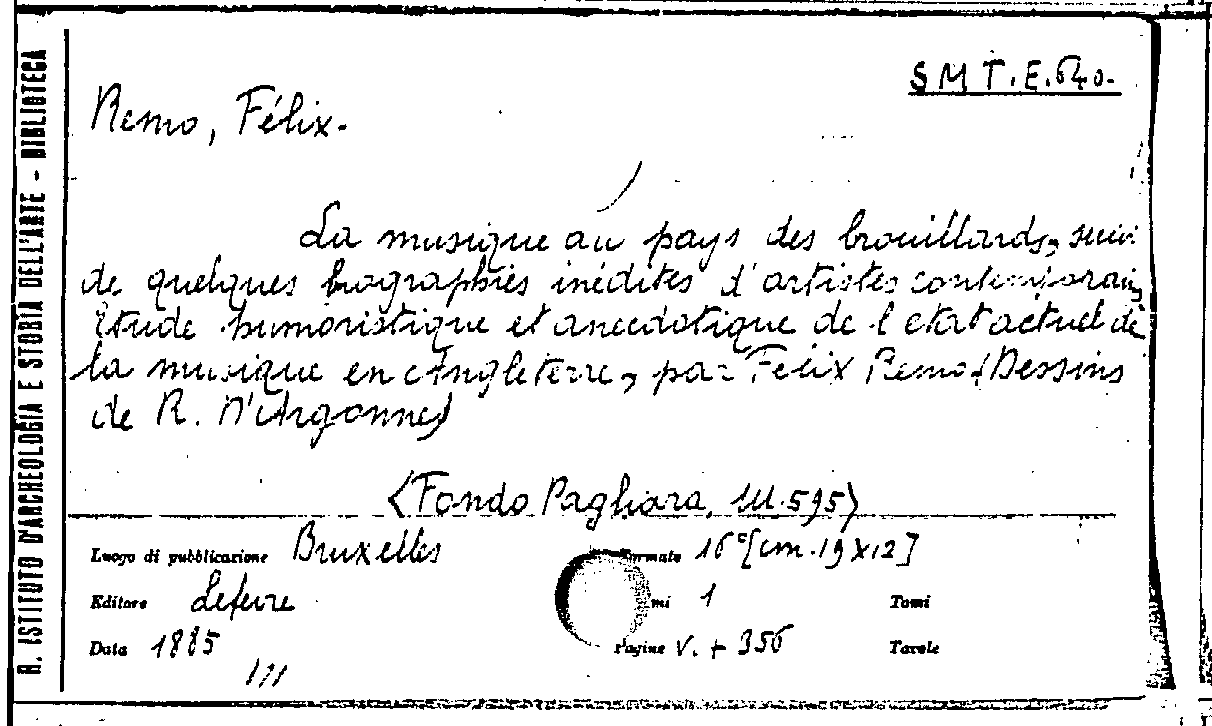 R. ISTITUTO D'ARCHEOLOGIA E STORIA DELL'ARTE - BIBLIOTECA
S M T. E. 640.
Remo, Félix.
La musique au pays des brouillards, suivi
de quelques biographies inédites d'artistes contemporains
Etude humoristique et anecdotique de l'etat actuel de
la musique en Angleterre, par Félix Remo (Dessins
de R. D'Argonne)
<Fondo Pagliara, III. 595>
Luogo di pubblicazione Bruxelles
Formato 16° [cm. 19 x 12]
Editore Lefevre
1
Tomi
Data 1885
Pagine V. + 356
Tavole